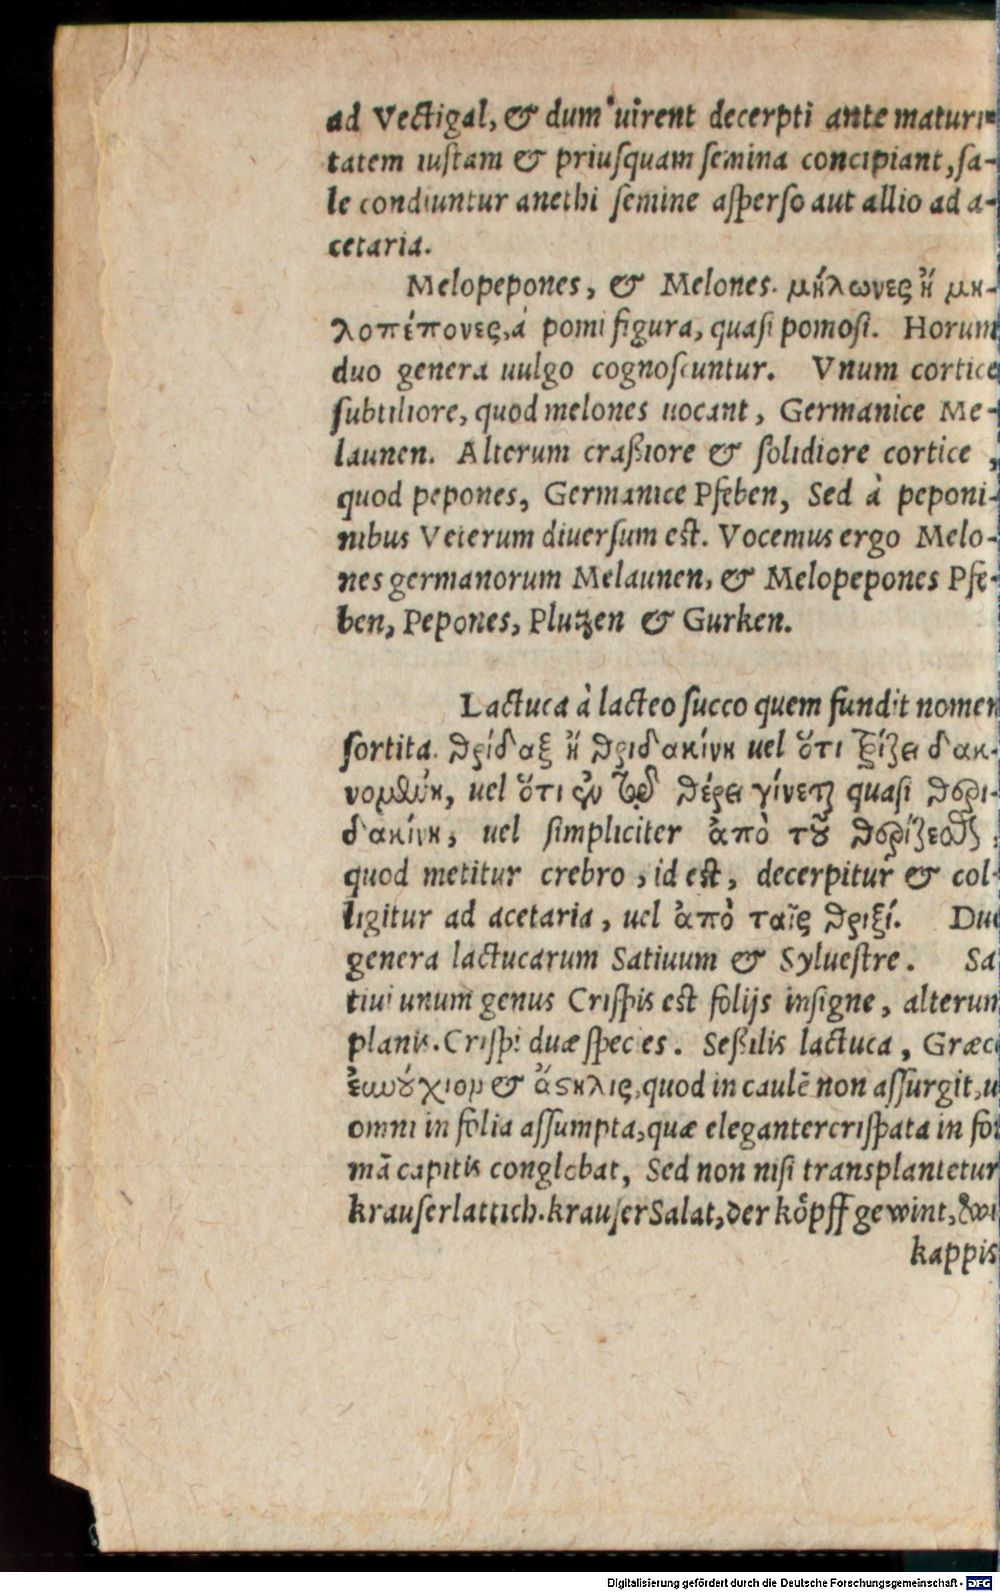 ad Vectigal, & dum uirent decerpti ante maturi-
tatem iustam & priusquam semina concipiant, sa-
le condiuntur anethi semine asperso aut allio ad a-
cetaria.
Melopepones, & Melones. μήλωνες ἢ μη-
λοπέπονες, á pomi figura, quasi pomosi. Horum
duo genera uulgo cognoscuntur. Vnum cortice
subtiliore, quod melones uocant, Germanice Me-
launen. Alterum craßiore & solidiore cortice,
quod pepones, Germanice Pfeben, Sed à peponi-
nibus Veterum diuersum est. Vocemus ergo Melo-
nes germanorum Melaunen, & Melopepones Pfe-
ben, Pepones, Plutzen & Gurken.
Lactuca à lacteo succo quem fundit nomen
sortita. θρίδαξ ἢ θριδακίνη uel ὅτι ῥίζει δακ-
uel ὅτι θέρει γίνεται quasi θερι-
δακίνη, uel simpliciter ἀπὸ τοῦ θερίζεσθαι,
quod metitur crebro, id est, decerpitur & col-
ligitur ad acetaria, uel ἀπὸ ταῖς θριξί. Duo
genera lactucarum Satiuum & Syluestre. Sa
tiui unum genus Crispis est folijs insigne, alterum
planis. Crispi duæ species. Seßilis lactuca, Græce
& ἄσκλις, quod in caulē non assurgit, u
omni in folia assumpta, quæ eleganter crispata in for
mā capitis conglobat, Sed non nisi transplantetur
krauser lattich. krauser Salat, der köpff gewint, wi
kappis
Digitalisierung gefördert durch die Deutsche Forschungsgemeinschaft - DFG